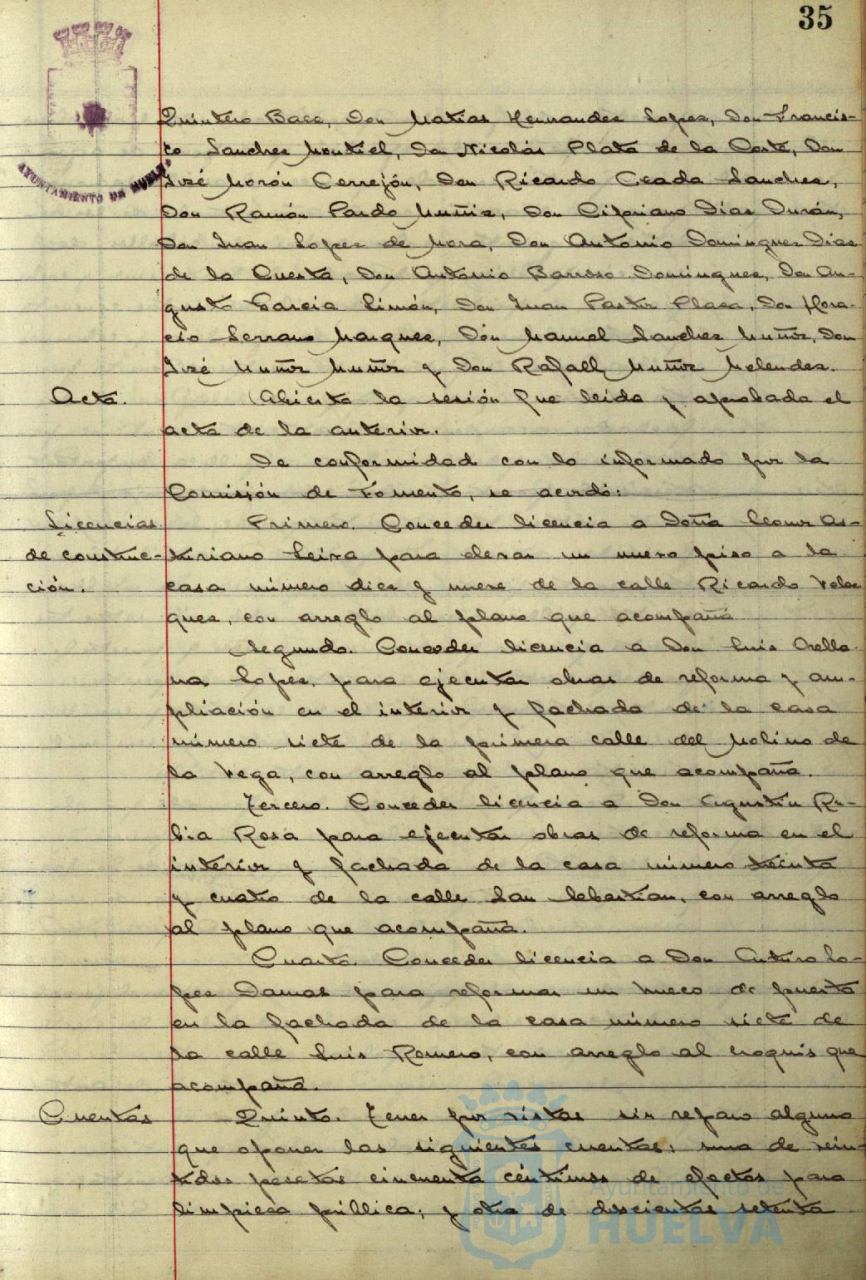 35
AYUNTAMIENTO DE HUELVA
Quintero Baez, Don Matias Hernandez Lopez, Don Francis-
co Sanchez Montiel, Don Nicolás Plata de la Corte, Don
José Morón Cerrejón, Don Ricardo Ceada Sanchez,
Don Ramón Pardo Muñiz, Don Cipriano Dias Durán,
Don Juan Lopez de Mora, Don António Dominguez Dias
de la Cuesta, Don António Barroso Dominguez, Don Au-
gusto Garcia Limón, Don Juan Pastor Plaza, Don Hora-
cio Serrano Marquez, Dón Manuel Sanchez Muñiz, Don
José Muñiz Muñiz y Don Rafaell Muñiz Melendez.
Acta.
Abierta la sesión fue leida y aprobada el
acta de la anterior.
De conformidad con lo informado por la
Comisión de Fomento, se acordó:
Licencias
de construc-
ción.
Primero. Conceder licencia a Doña Leonor As-
tiriano Leira para elevar un nuevo piso a la
casa número diez y nueve de la calle Ricardo Velaz
quez, con arreglo al plano que acompaña
Segundo. Conceder licencia a Don Luis Orella-
na Lopez, para ejecutar obras de reforma y am-
pliación en el interior y fachada de la casa
número siete de la primera calle del Molino de
la Vega, con arreglo al plano que acompaña.
Tercero. Conceder licencia a Don Agustin Ru-
bia Rosa para ejecutar obras de reforma en el
interior y fachada de la casa número treinta
y cuatro de la calle San Sebastian, con arreglo
al plano que acompaña.
Cuarto. Conceder licencia a Don Arturo Lo-
pez Damas para reformar un hueco de puerta
en la fachada de la casa número siete de
la calle Luis Romero, con arreglo al croquis que
acompaña.
Cuentas
Quinto. Tener por vistas sin reparo alguno
que oponer las siguientes cuentas: una de vein-
tidos pesetas cincuenta céntimos de efectos para
limpieza pública; y otra de doscientas setenta
Ayuntamiento de
HUELVA